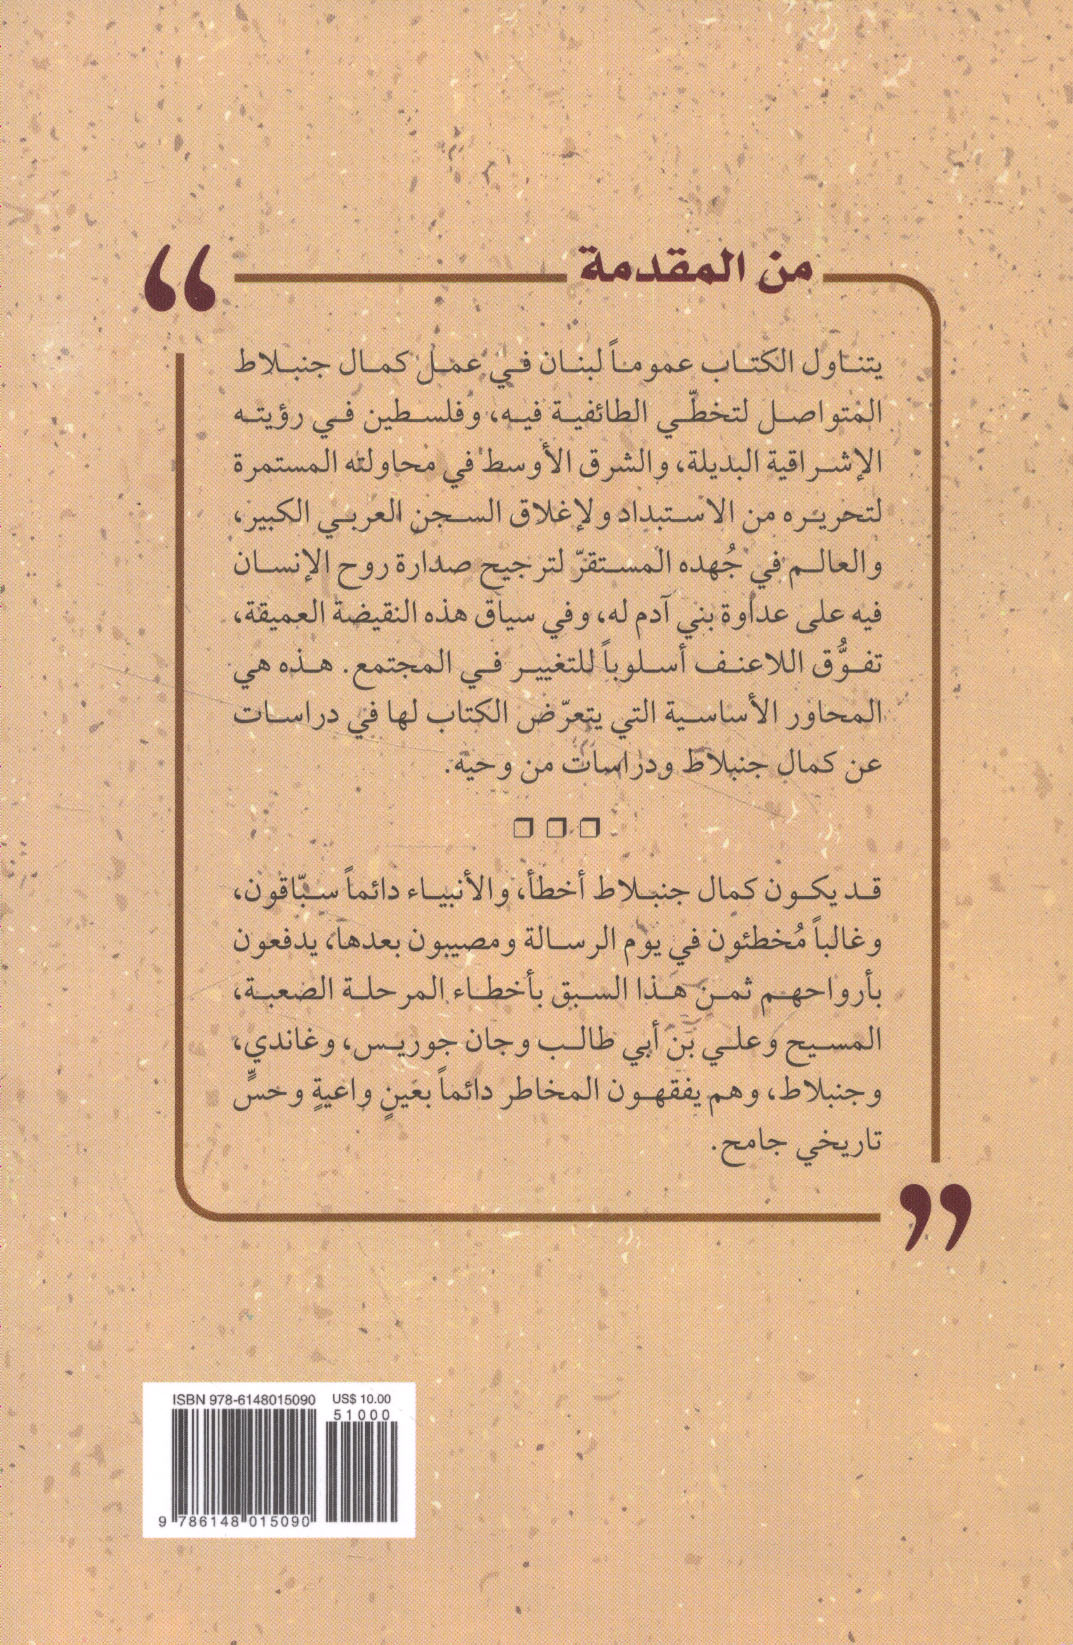 من المقدمة
يتناول الكتاب عموماً لبنان في عمل كمال جنبلاط
المتواصل لتخطّي الطائفية فيه، وفلسطين في رؤيته
الإشراقية البديلة، والشرق الأوسط في محاولته المستمرة
لتحريره من الاستبداد ولإغلاق السجن العربي الكبير،
والعالم في جُهده المستقرّ لترجيح صدارة روح الإنسان
فيه على عداوة بني آدم له، وفي سياق هذه النقيضة العميقة،
تفوُّق اللاعنف أسلوباً للتغيير في المجتمع. هذه هي
المحاور الأساسية التي يتعرّض الكتاب لها في دراسات
عن كمال جنبلاط ودراسات من وحيه.
❒ ❒ ❒
قد يكون كمال جنبلاط أخطأ، والأنبياء دائماً سبّاقون،
وغالباً مُخطئون في يوم الرسالة ومصيبون بعدها، يدفعون
بأرواحهم ثمن هذا السبق بأخطاء المرحلة الصعبة،
المسيح وعلي بن أبي طالب وجان جوريس، وغاندي،
وجنبلاط، وهم يفقهون المخاطر دائماً بعَينٍ واعيةٍ وحسٍّ
تاريخي جامح.
ISBN 978-6148015090 US$ 10.00
51000
9 786148 015090